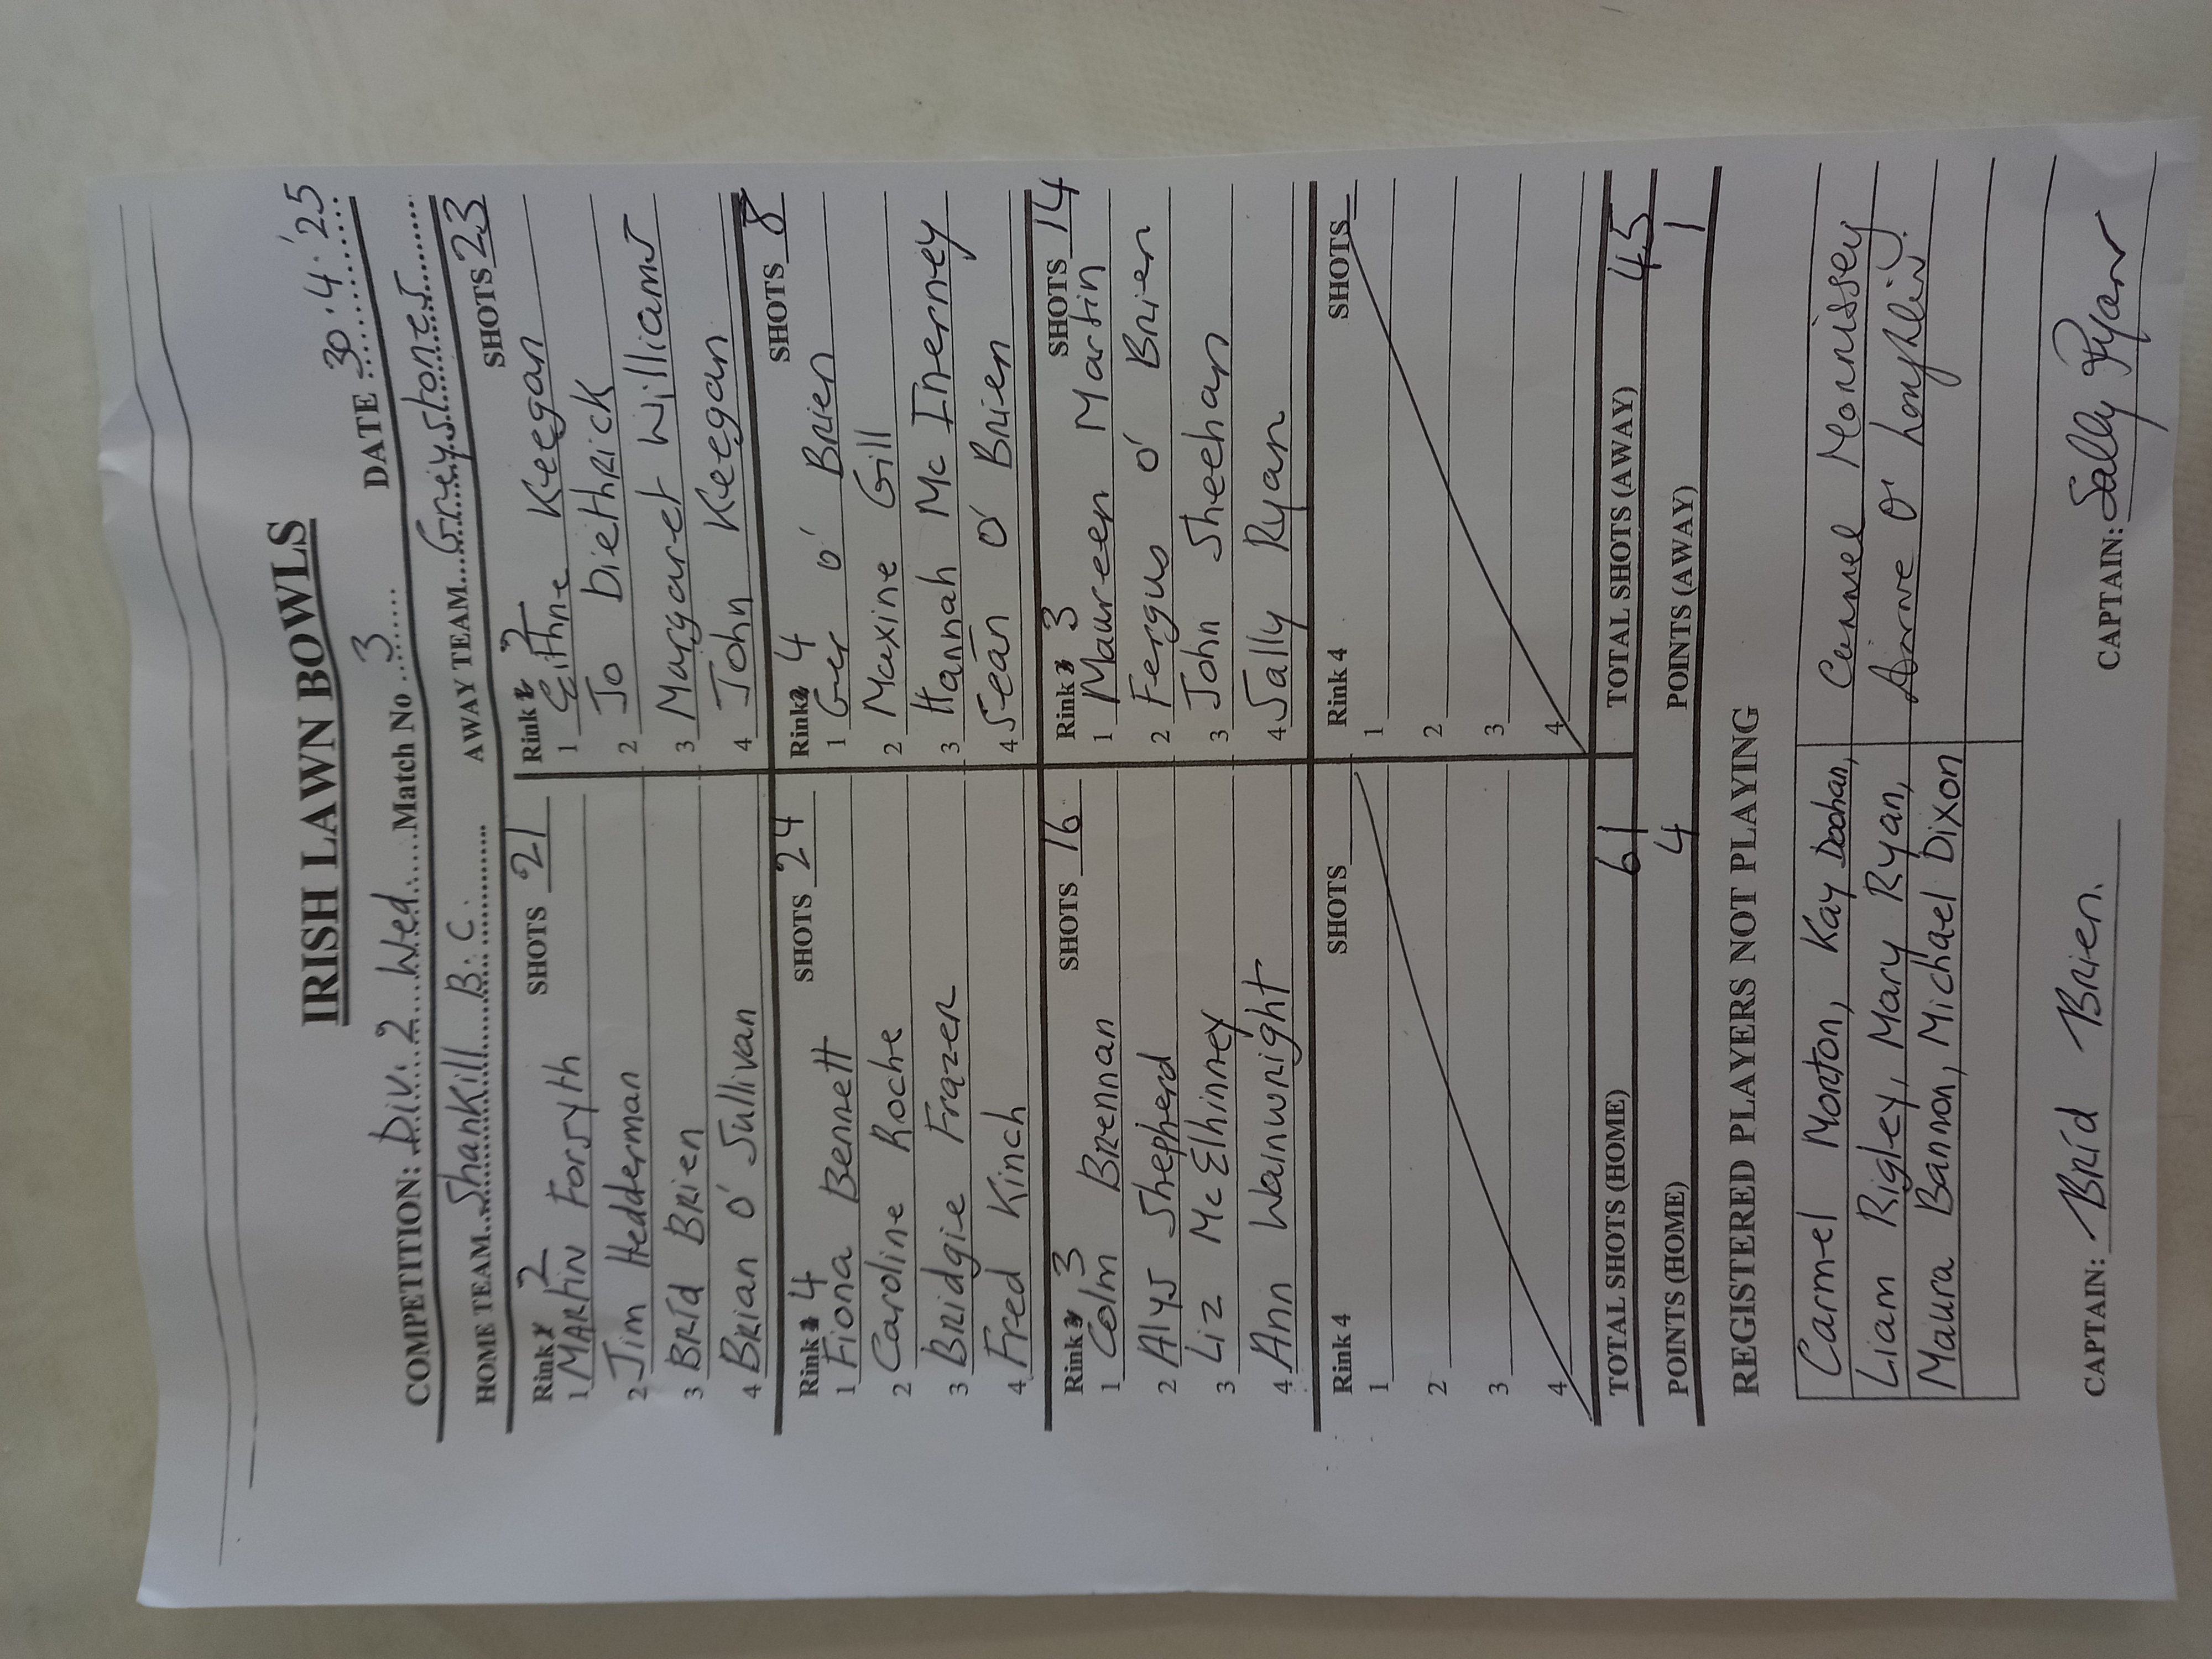 IRISH LAWN BOWLS
COMPETITION: Div. 2 Wed Match No 3 DATE 30.4.'25
HOME TEAM Shankill B.C. AWAY TEAM Greystones
Rink 2 SHOTS 21
1 Martin Forsyth
2 Jim Hedderman
3 Bríd Brien
4 Brian O' Sullivan
Rink 2 SHOTS 23
1 Eithne Keegan
2 Jo Diethrick
3 Margaret Williams
4 John Keegan
Rink 4 SHOTS 24
1 Fiona Bennett
2 Caroline Roche
3 Bridgie Frazer
4 Fred Kinch
Rink 4 SHOTS 8
1 Ger O' Brien
2 Maxine Gill
3 Hannah Mc Inerney
4 Seán O' Brien
Rink 3 SHOTS 16
1 Colm Brennan
2 Alys Shepherd
3 Liz McElhinney
4 Ann Wainwright
Rink 3 SHOTS 14
1 Maureen Martin
2 Fergus O' Brien
3 John Sheehan
4 Sally Ryan
Rink 4 SHOTS
1
2
3
4
Rink 4 SHOTS
1
2
3
4
TOTAL SHOTS (HOME) 61 TOTAL SHOTS (AWAY) 45
POINTS (HOME) 4 POINTS (AWAY) 1
REGISTERED PLAYERS NOT PLAYING
Carmel Morton, Kay Doohan, Carmel Morrissey
Liam Rigley, Mary Ryan, Anne O' Loughlin
Maura Bannon, Michael Dixon
CAPTAIN: Bríd Brien. CAPTAIN: Sally Ryan